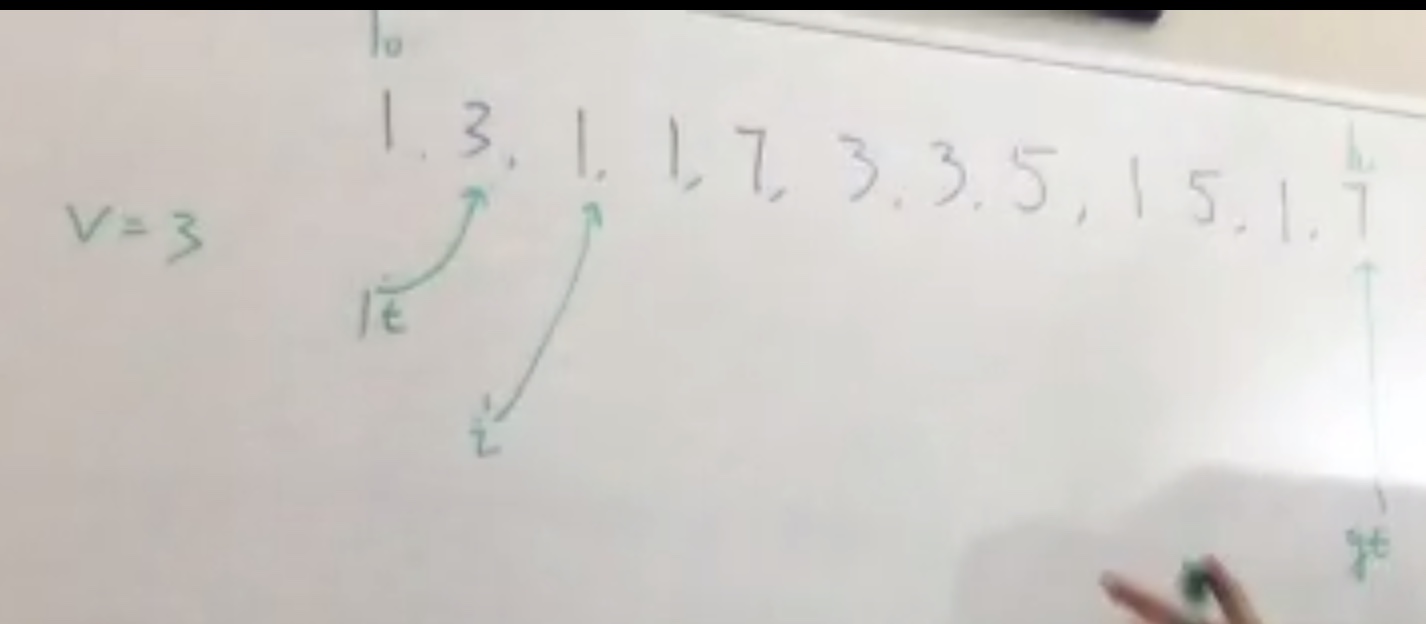 lo
hi
1, 3, 1, 1, 7, 3, 3, 5, 1 5, 1, 7
V = 3
lt
i
gt